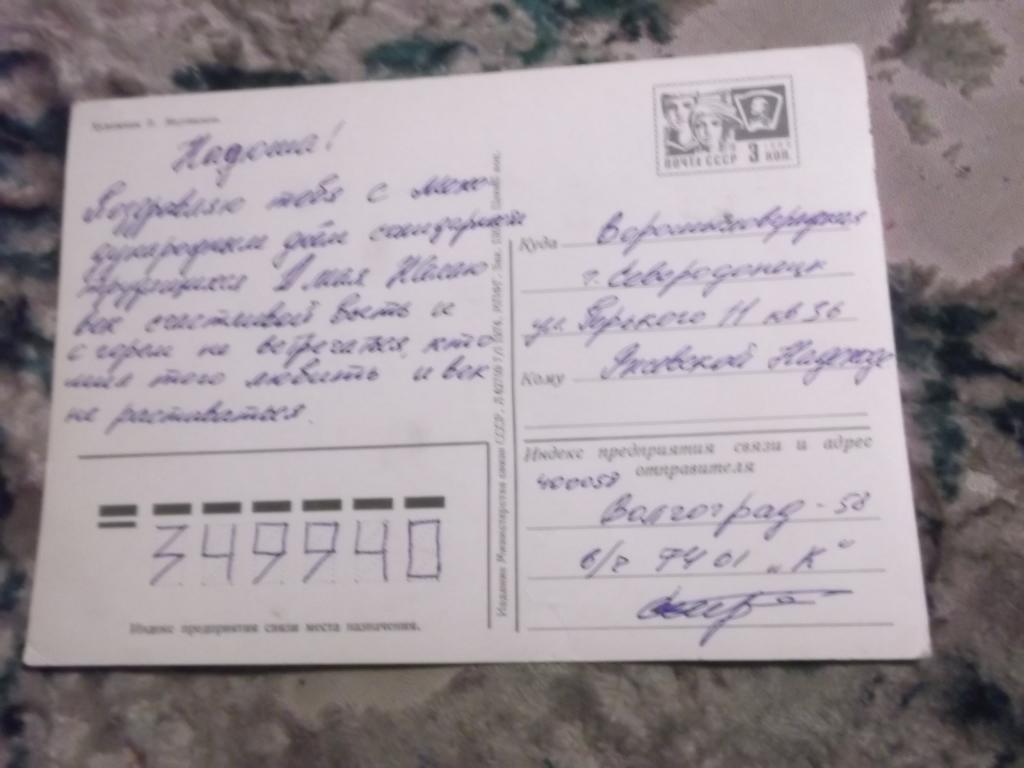 Художник
Надюша!
Поздравляю тебя с меж-
дународным днём солидарности
трудящихся 1 мая Желаю
век счастливой быть и
с горем не встречаться, кто
мил того любить и век
не раставаться.
Индекс предприятия связи места назначения.
349940
Издание Министерства связи СССР.
ПОЧТА СССР 3 КОП.
Куда Ворошиловградская
г. Северодонецк
ул Горького 11 кв 36
Кому Надежде
Индекс предприятия связи и адрес
отправителя
400058
Волгоград - 58
в/ч 7401 „К“